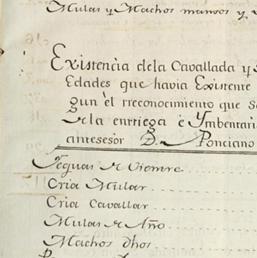 Mulas y Machos mansos y
Existencia dela Cavallada y
Edades que havia Existente
gun èl rreconocimiento que se
de la entriega è Ymbentari
antesesor D. Ponciano
Yeguas de Vientre
Cria Mular
Cria Cavallar
Mulas de Año
Machos dhos